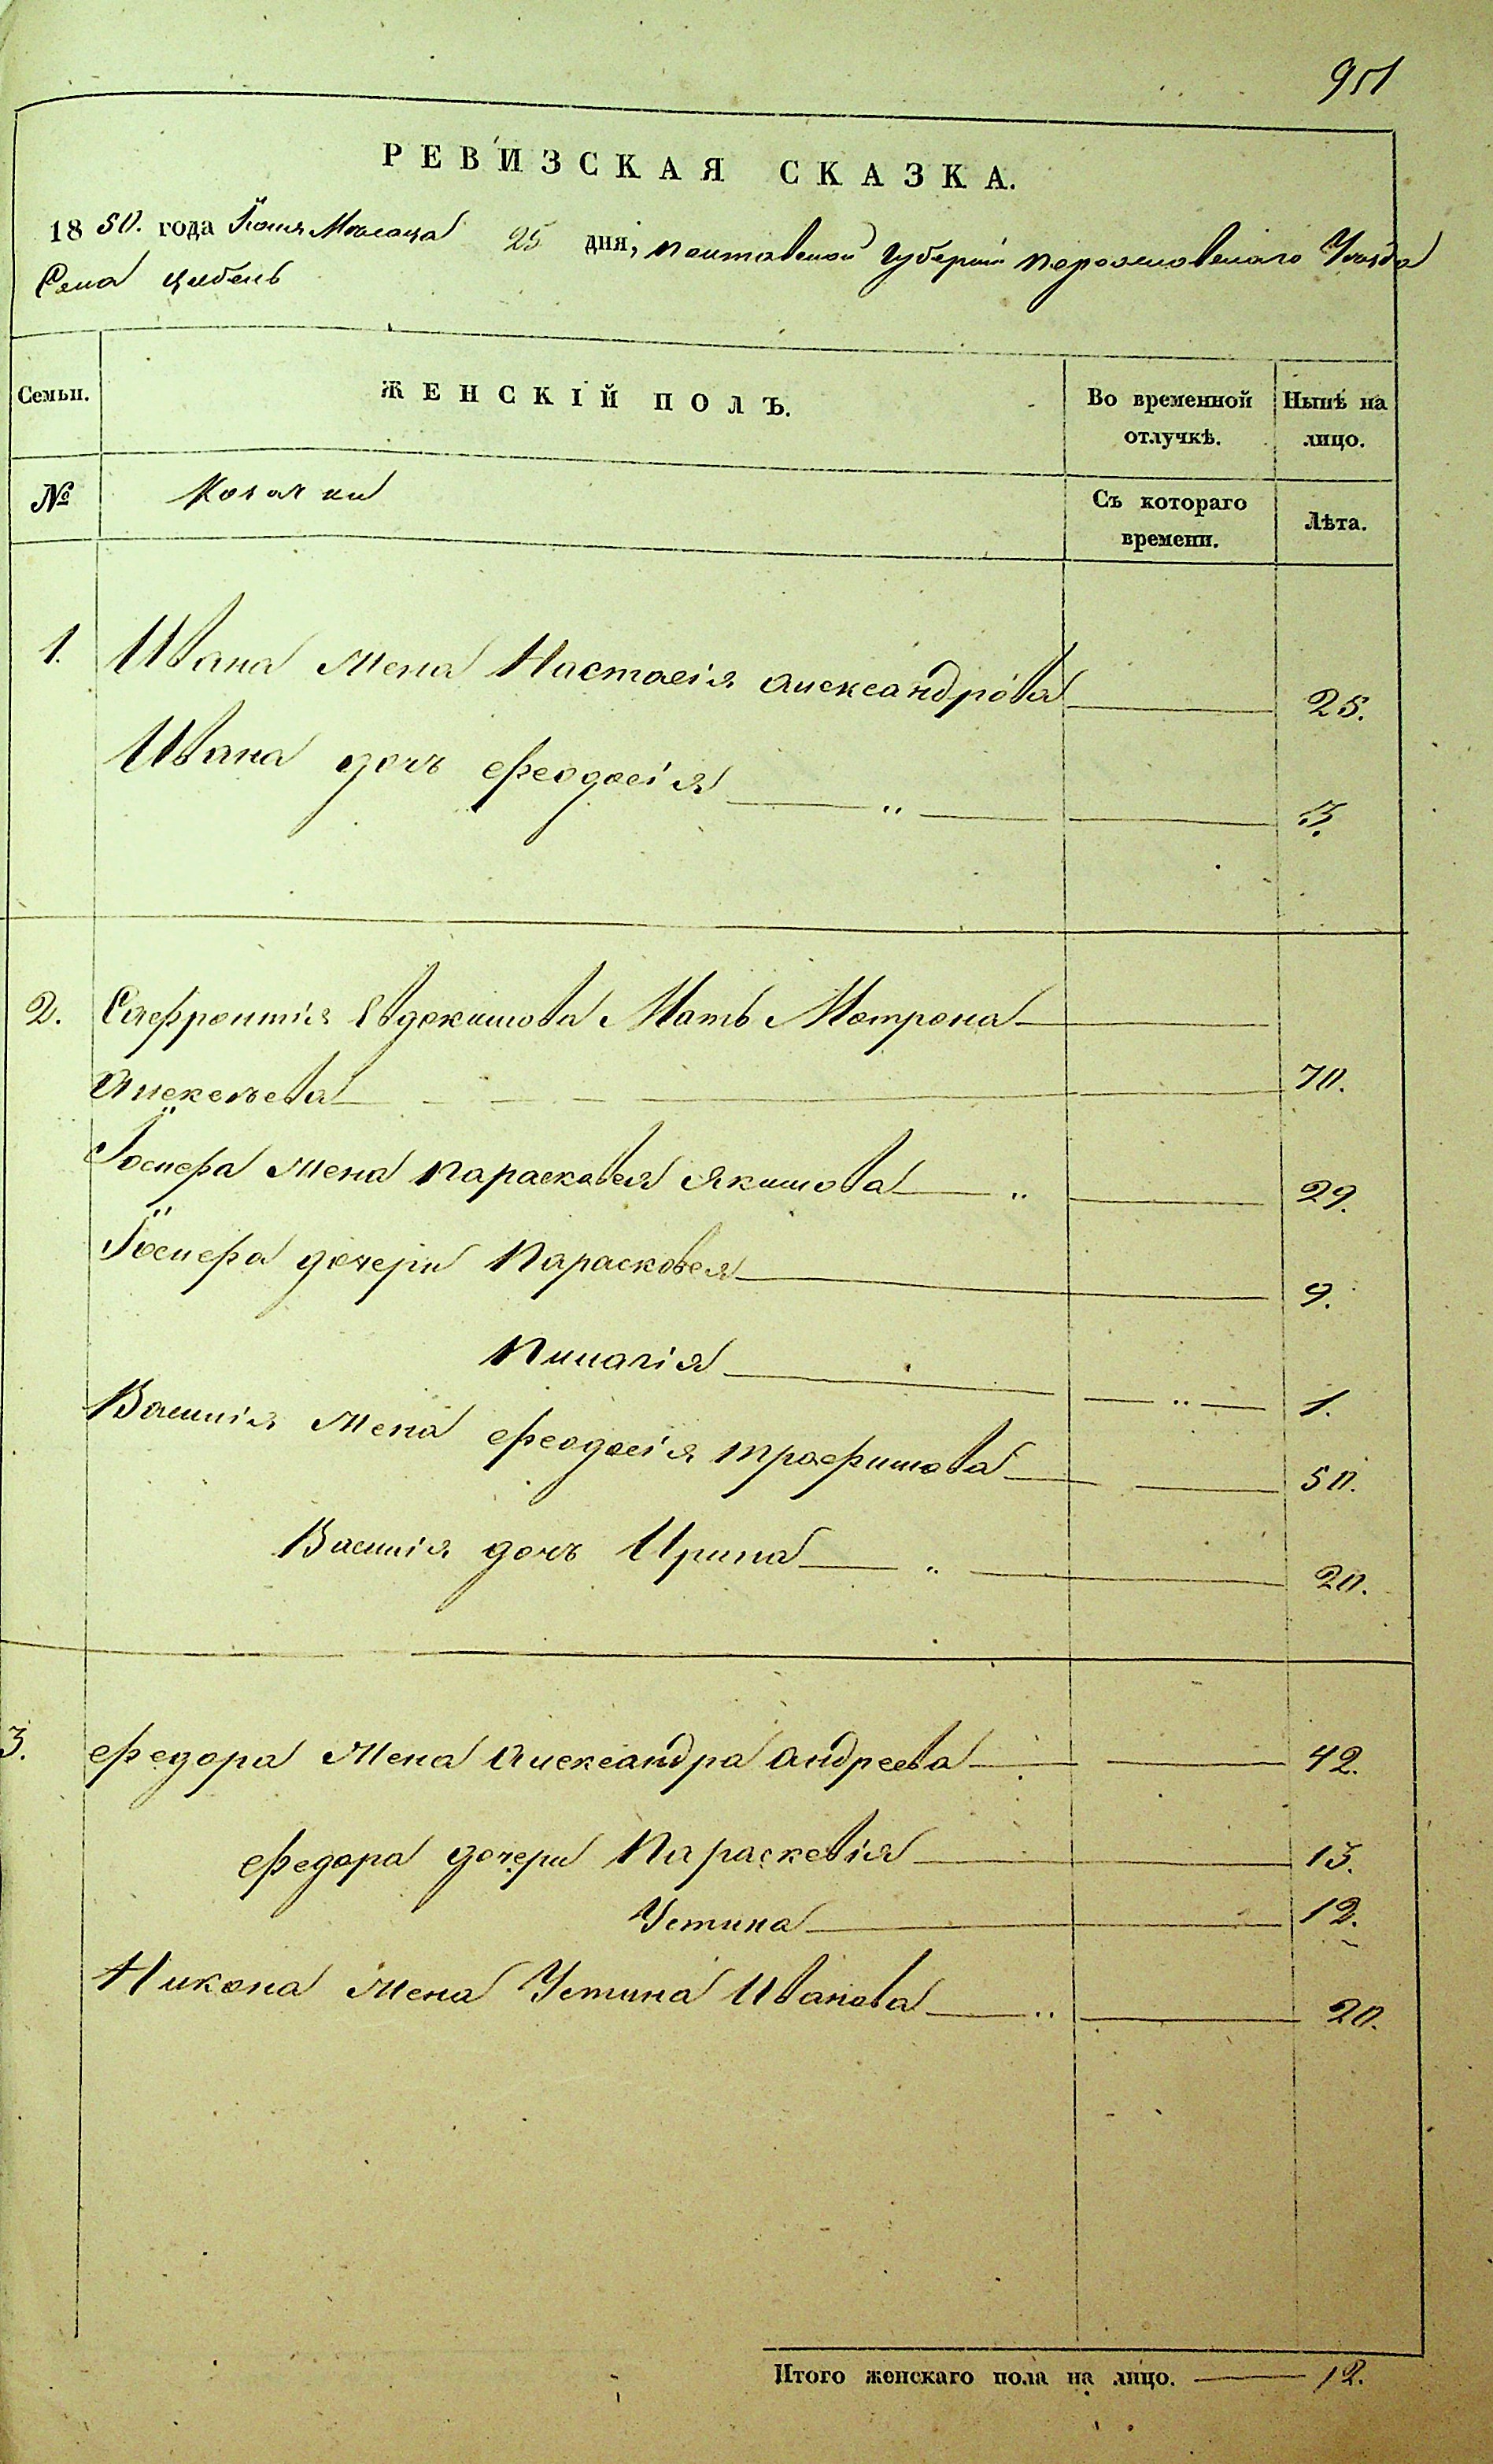 951
РЕВИЗСКАЯ СКАЗКА.
1850. года Іюня Мѣсяца 25 дня, Полтавской Губерніи Переяславскаго Уѣзда
Села Цибель
Семьи. ЖЕНСКІЙ ПОЛЪ. Во временной отлучкѣ. Нынѣ на лицо.
№ Козачки Съ котораго времени. Лѣта.
1. Ивана жена Настасія Александрова 25.
Ивана дочь Феодосія " 3.
2. Сафронтія Евдокимова Мать Мотрона
Алексѣева 70.
Іосифа жена Парасковея Якимова " 29.
Іосифа дочери Парасковея 9.
Пилагія " 1.
Василія жена Феодосія Трофимова 50.
Василія дочь Ирина " 20.
3. Федора жена Александра Андреева 42.
Федора дочери Параскевія 15.
Устина 12.
Никона жена Устина Иванова " 20.
Итого женскаго пола на лицо. 12.